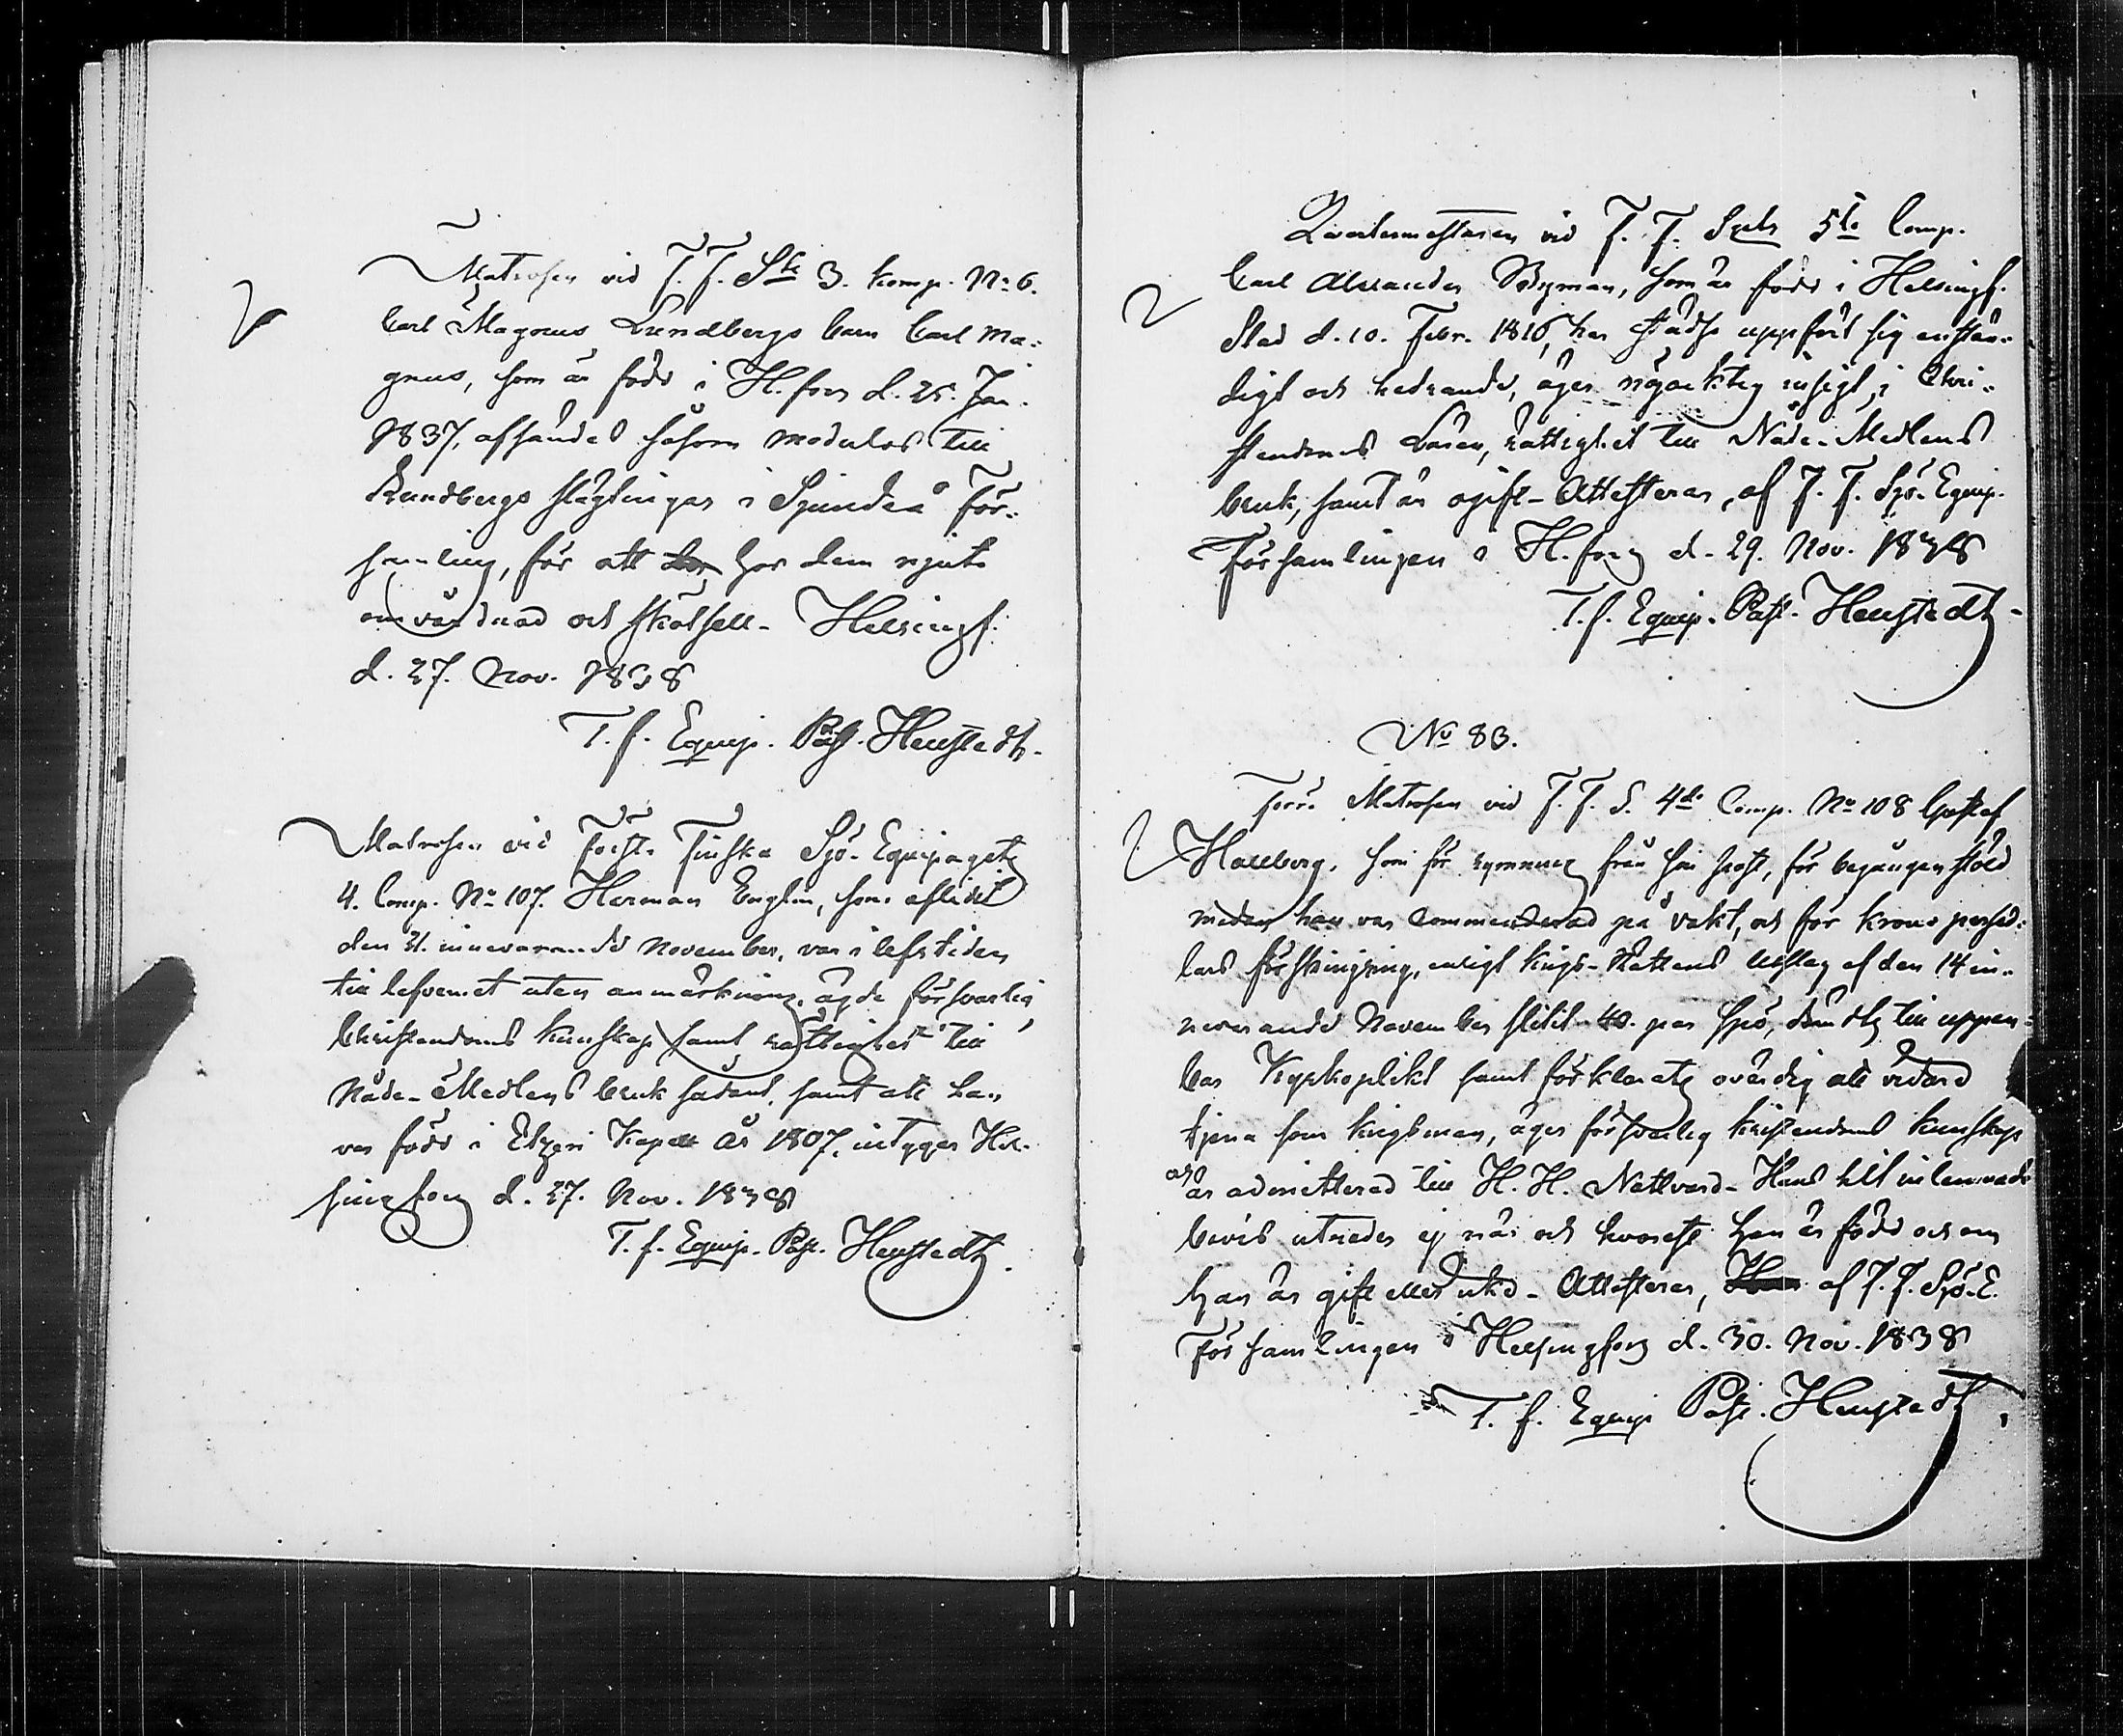 Matrosen vid F. F. S. 3. komp. No 6.
Carl Magnus Lundbergs barn Carl Ma-
gnus, som är född i H.fors d. 25. Jan.
1837, afsändes såsom moderlös till
Lundbergs slägtingar i Sjundeå För-
samling, för att hos dem njuta
omvårdnad och skötsell - Helsingf.
d. 27. Nov. 1838
T. f. Equip. Past. Heustedt.
Matrosen vid Första Finska Sjö-Equipaget
4. Comp. No 107. Herman Englin, som aflidit
den 21. innevarande November, var i lefstiden
till lefvernet utan anmärkning, ägde försvarlig
Christendoms kunskap samt rättighet till
Nåde-Medlens bruk sådant, samt att han
var född i Kapell år 1807, intygar Hel-
singfors d. 27. Nov. 1838
T. f. Equip. Past. Heustedt.
Qvartermästaren vid F. F. 5te Comp.
Carl Alexander, som är född i Helsingf.
Stad d. 10. Febr. 1816, har städse uppfört sig anstän-
digt och hedrande, äger nöjaktig insigt i Chri-
stendoms Läran, rättighet till Nåde-Medlens
bruk, samt är ogift - Attesteras, af F. F. Sjö-Equip.
Församlingen i H.fors d. 29. Nov. 1838
T. f. Equip. Past. Heustedt -
No 83.
Förre Matrosen vid F. F. S. 4de Comp. No 108 Gustaf
Hallberg, som för rymning från sin post, för begången stöld
medan han var Commenderad på vakt, och för krono persed-
lars förskingring, enligt Krigs-Rättens Utslag af den 14 in-
nevarande November slitit 40. par spö, dömdts till uppen-
bar Kyrkoplikt samt förklarats ovärdig att vidare
tjena som krigsman, äger försvarlig kristendoms kunskap
och är admitterad till H. H. Nattvard - Hans hit inlemnade
bevis utreder ej när och hvarest han är född och om
han är gift eller icke - Attesteras, af F. F. Sjö-E.
Församlingen i Helsingfors d. 30. Nov. 1838
T. f. Equip Past. Heustedt.